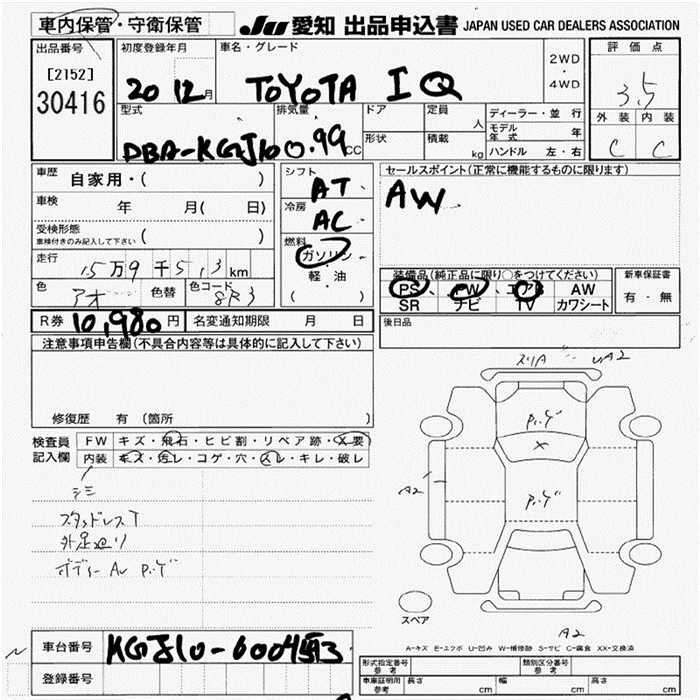 車内保管・守衛保管
JU 愛知 出品申込書 JAPAN USED CAR DEALERS ASSOCIATION
出品番号
[2152]
30416
初度登録年月
20 12月
車名・グレード
TOYOTA IQ
2WD
・
4WD
評価点
3.5
外装 内装
C C
型式
DBA-KGJ10
排気量
0.99cc
ドア
形状
定員 人
積載 kg
ディーラー・並行
モデル年式 年
ハンドル 左・右
車歴 自家用・( )
車検 年 月( 日)
受検形態
車検付きのみ記入して下さい ( )
走行
15万9千5,3km
色 アオ 色替 色コード 8R3
シフト
AT
冷房
AC
燃料
ガソリン
軽・油
( )
セールスポイント(正常に機能するものに限ります)
AW
装備品(純正品に限り○をつけてください)
PS、PW、エアB AW
SR ナビ TV カワシート
新車保証書
有・無
後日品
R券 10,980円 名変通知期限 月 日
注意事項申告欄(不具合内容等は具体的に記入して下さい)
修復歴 有 (箇所 )
検査員
記入欄
FW キズ・飛石・ヒビ割・リペア跡・X要
内装 キズ・汚レ・コゲ・穴・スレ・キレ・破レ
シミ
スタッドレスT
外足廻リ
スリA UA2
A2
X
スペア
A2
A-キズ E-エクボ U-凹み W-補修跡 S-サビ C-腐食 XX-交換済
車台番号
登録番号
形式指定番号 参考
類別区分番号 参考
車庫証明用 参考 長さ cm 幅 cm 高さ cm